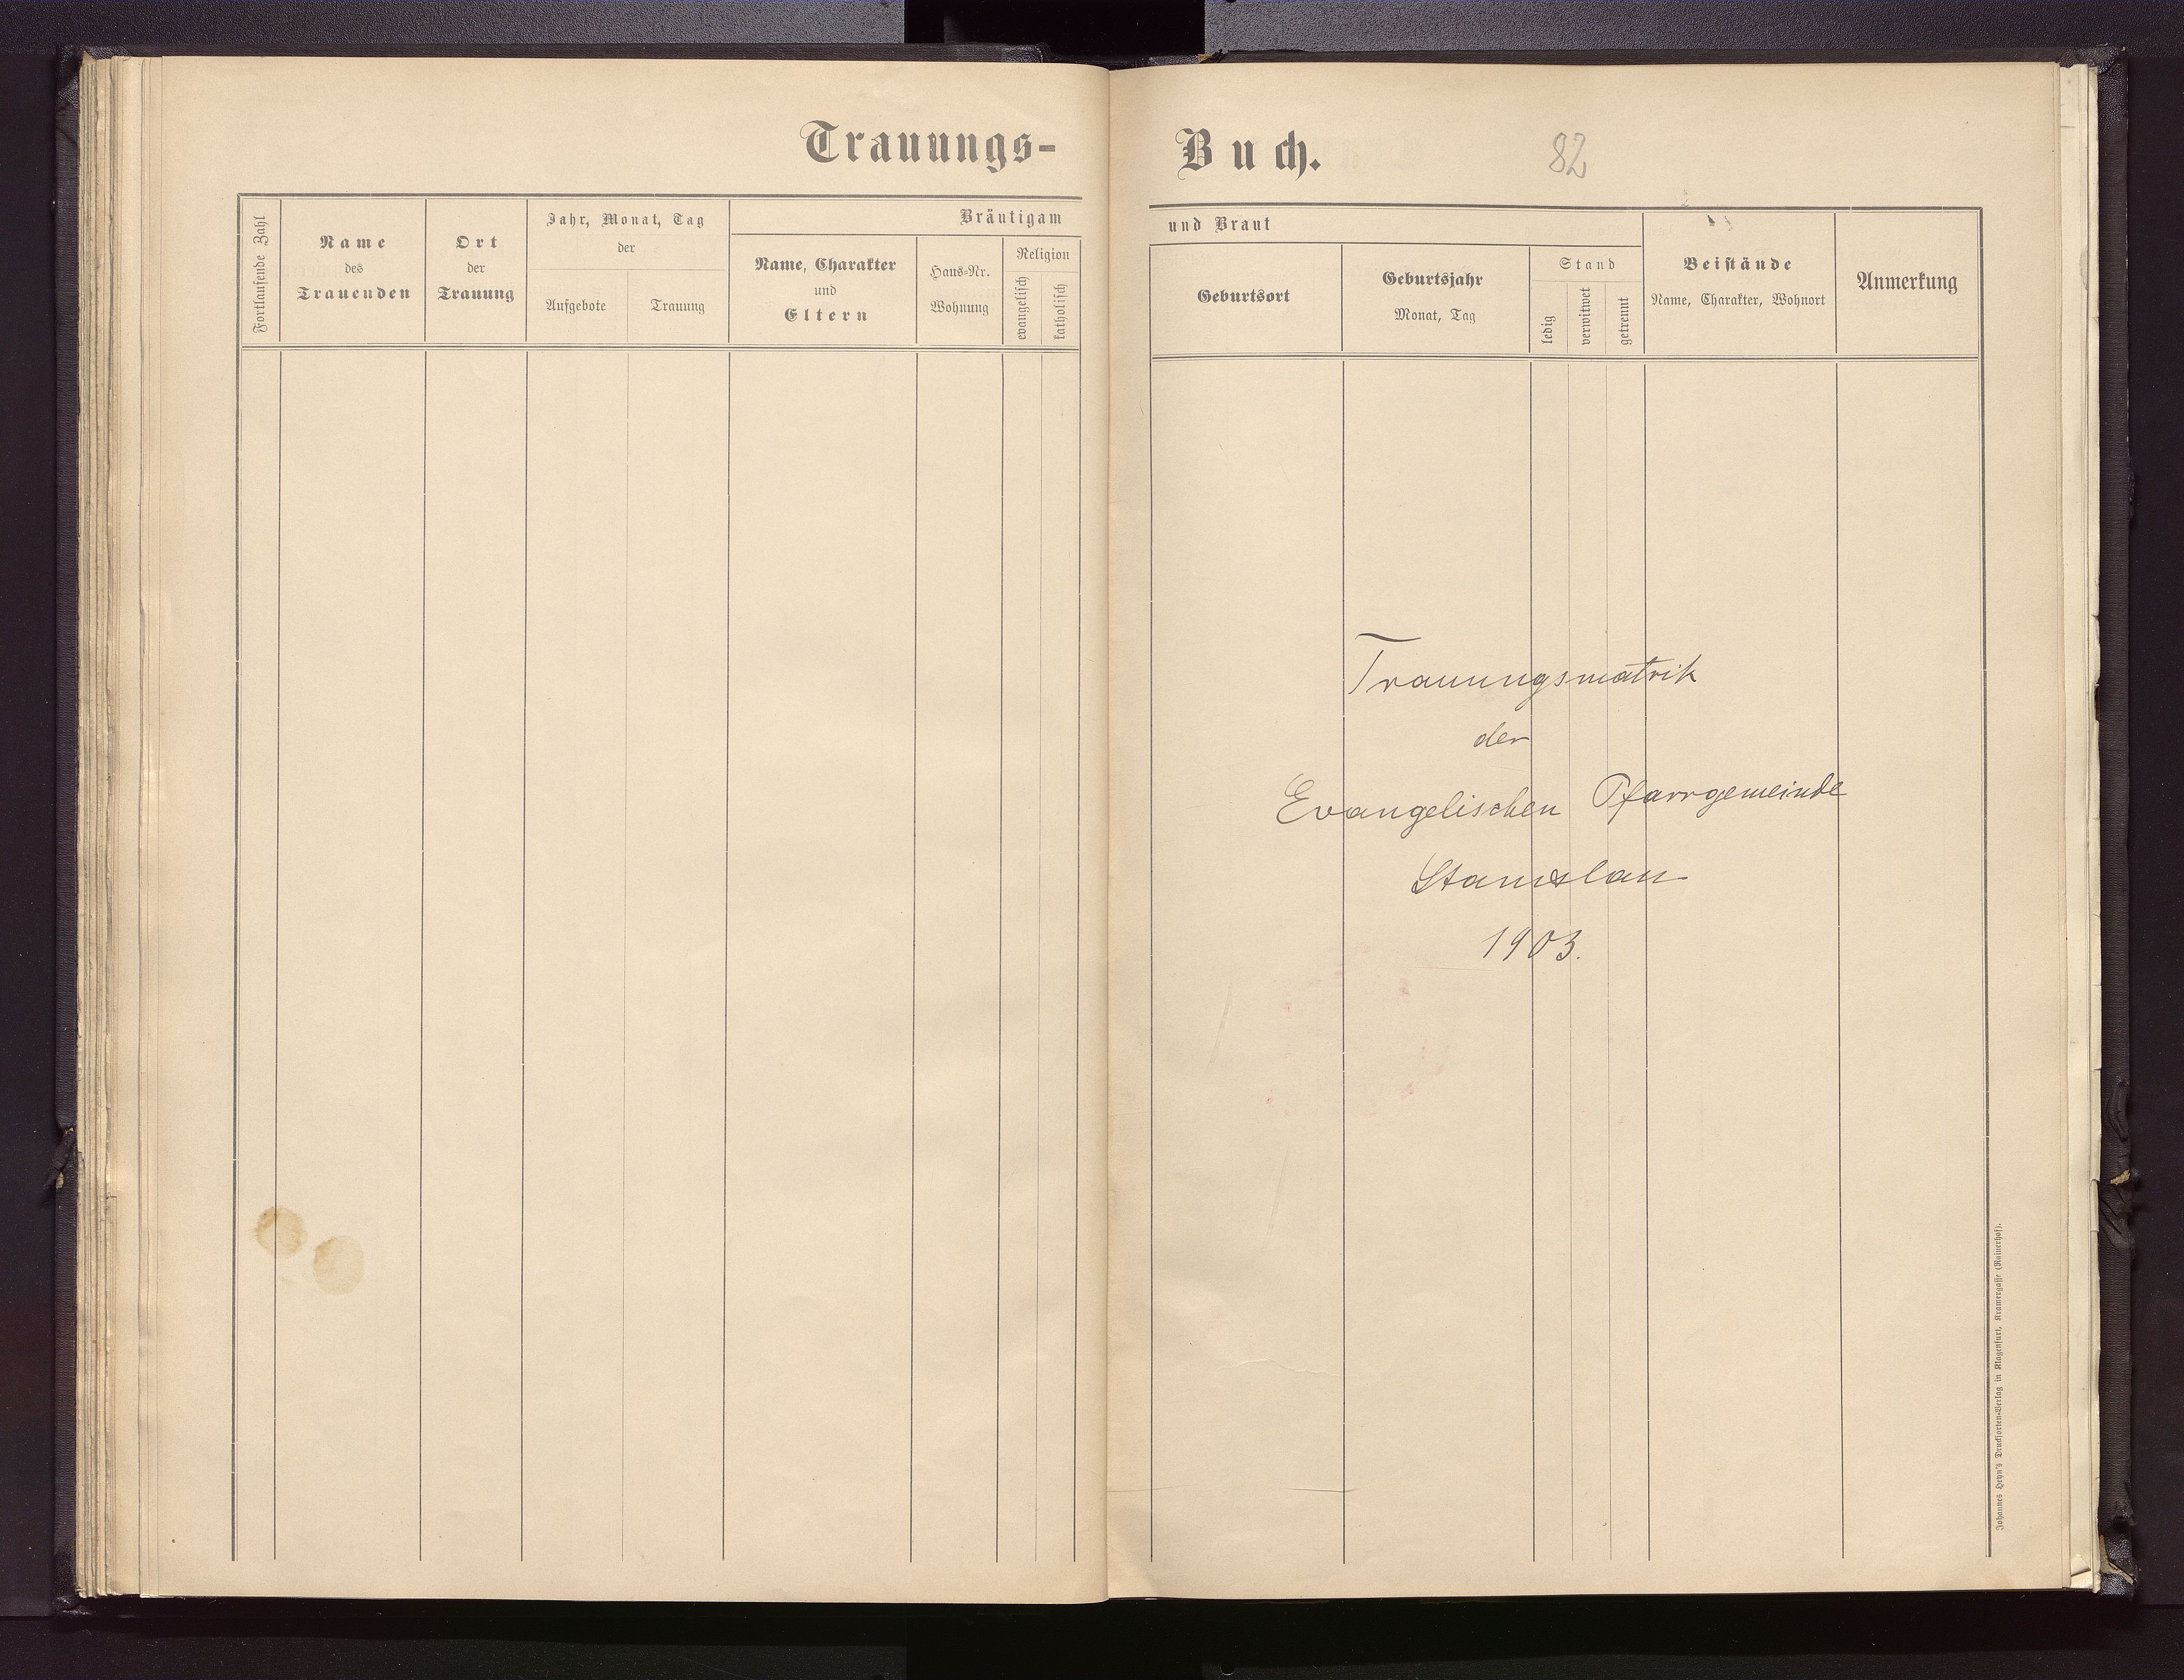 Trauungs-
Buch.
82
Fortlaufende Zahl
Name
des
Trauenden
Ort
der
Trauung
Jahr, Monat, Tag
der
Aufgebote
Trauung
Bräutigam
Name, Charakter
und
Eltern
Haus-Nr.
Wohnung
Religion
evangelisch
katholisch
und Braut
Geburtsort
Geburtsjahr
Monat, Tag
Stand
ledig
verwitwet
getrennt
Beistände
Name, Charakter, Wohnort
Anmerkung
Trauungsmatrik
der
Evangelischen Pfarrgemeinde
Stanislau
1903.
Johannes Heyn's Drucksorten-Verlag in Klagenfurt, Kramergasse (Rainerhof).